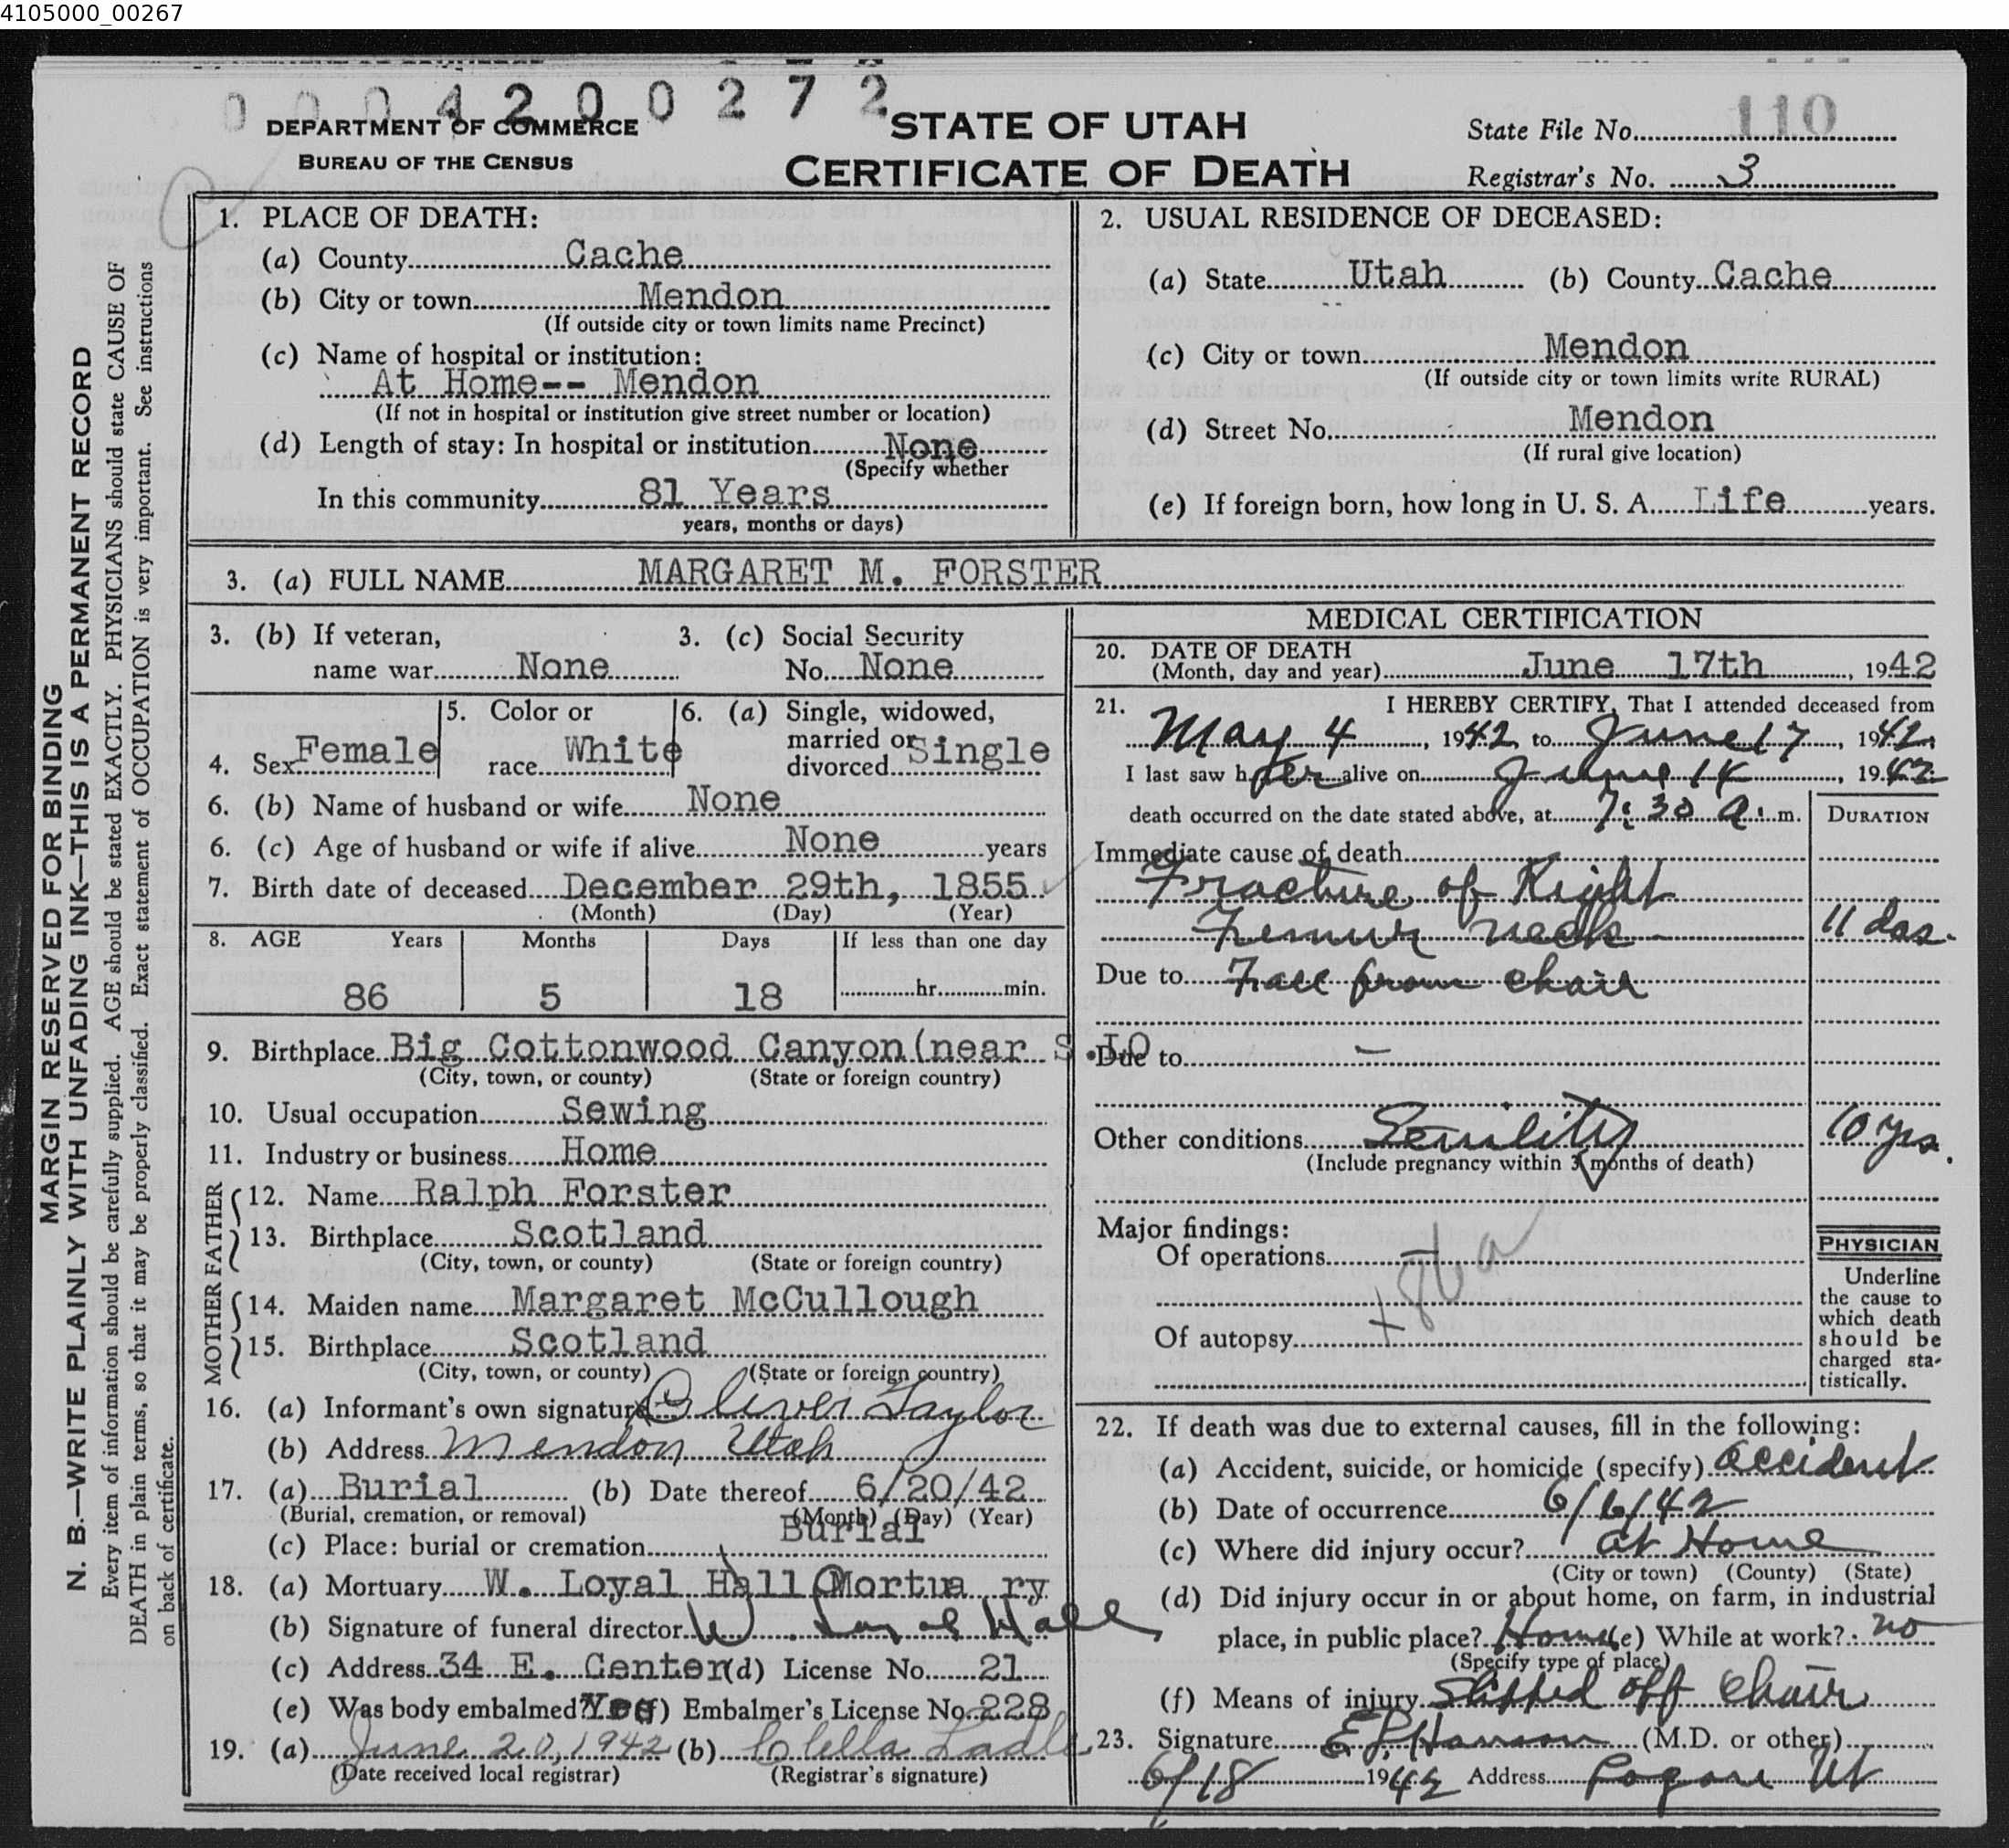 4105000_00267
0004200272
DEPARTMENT OF COMMERCE
BUREAU OF THE CENSUS
STATE OF UTAH
CERTIFICATE OF DEATH
State File No. 110
Registrar's No. 3
MARGIN RESERVED FOR BINDING
N. B.—WRITE PLAINLY WITH UNFADING INK—THIS IS A PERMANENT RECORD
Every item of information should be carefully supplied. AGE should be stated EXACTLY. PHYSICIANS should state CAUSE OF
DEATH in plain terms, so that it may be properly classified. Exact statement of OCCUPATION is very important. See instructions
on back of certificate.
1. PLACE OF DEATH:
(a) County Cache
(b) City or town Mendon
(If outside city or town limits name Precinct)
(c) Name of hospital or institution:
At Home-- Mendon
(If not in hospital or institution give street number or location)
(d) Length of stay: In hospital or institution None
(Specify whether
In this community 81 Years
years, months or days)
2. USUAL RESIDENCE OF DECEASED:
(a) State Utah (b) County Cache
(c) City or town Mendon
(If outside city or town limits write RURAL)
(d) Street No. Mendon
(If rural give location)
(e) If foreign born, how long in U. S. A. Life years.
3. (a) FULL NAME MARGARET M. FORSTER
3. (b) If veteran,
name war None
3. (c) Social Security
No. None
4. Sex Female
5. Color or
race White
6. (a) Single, widowed,
married or
divorced Single
6. (b) Name of husband or wife None
6. (c) Age of husband or wife if alive None years
7. Birth date of deceased December 29th, 1855
(Month) (Day) (Year)
8. AGE Years Months Days If less than one day
86 5 18 hr. min.
9. Birthplace Big Cottonwood Canyon(near S.
(City, town, or county) (State or foreign country)
10. Usual occupation Sewing
11. Industry or business Home
FATHER
12. Name Ralph Forster
13. Birthplace Scotland
(City, town, or county) (State or foreign country)
MOTHER
14. Maiden name Margaret McCullough
15. Birthplace Scotland
(City, town, or county) (State or foreign country)
16. (a) Informant's own signature Oliver Taylor
(b) Address Mendon Utah
17. (a) Burial (b) Date thereof 6/20/42
(Burial, cremation, or removal) (Month) (Day) (Year)
(c) Place: burial or cremation Burial
18. (a) Mortuary W. Loyal Hall Mortua ry
(b) Signature of funeral director W. Loyal Hall
(c) Address 34 E. Center (d) License No. 21
(e) Was body embalmed? Yes (f) Embalmer's License No. 228
19. (a) June 20, 1942 (b)
(Date received local registrar) (Registrar's signature)
MEDICAL CERTIFICATION
20. DATE OF DEATH
(Month, day and year) June 17th, 1942
21. I HEREBY CERTIFY, That I attended deceased from
May 4, 1942 to June 17, 1942
I last saw her alive on June 14, 1942
death occurred on the date stated above, at 7:30 a. m.
DURATION
Immediate cause of death
Fracture of Right
Femur neck 11 das.
Due to Fall from chair
Due to –
Other conditions Senility 10 yrs.
(Include pregnancy within 3 months of death)
Major findings:
Of operations
Of autopsy
PHYSICIAN
Underline
the cause to
which death
should be
charged sta-
tistically.
22. If death was due to external causes, fill in the following:
(a) Accident, suicide, or homicide (specify) accident
(b) Date of occurrence 6/6/42
(c) Where did injury occur? at Home
(City or town) (County) (State)
(d) Did injury occur in or about home, on farm, in industrial
place, in public place? Home (e) While at work? no
(Specify type of place)
(f) Means of injury Slipped off chair
23. Signature (M.D. or other)
6/18 1942 Address Logan Ut